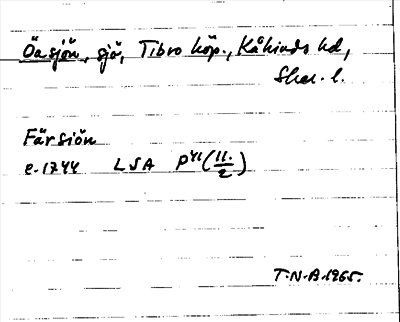 Öasjön, sjö, Tibro köp., Kåkinds hd,
Skar. l.
Färsiön
e. 1744 LSA P41 (11./2)
T.N.B. 1965.